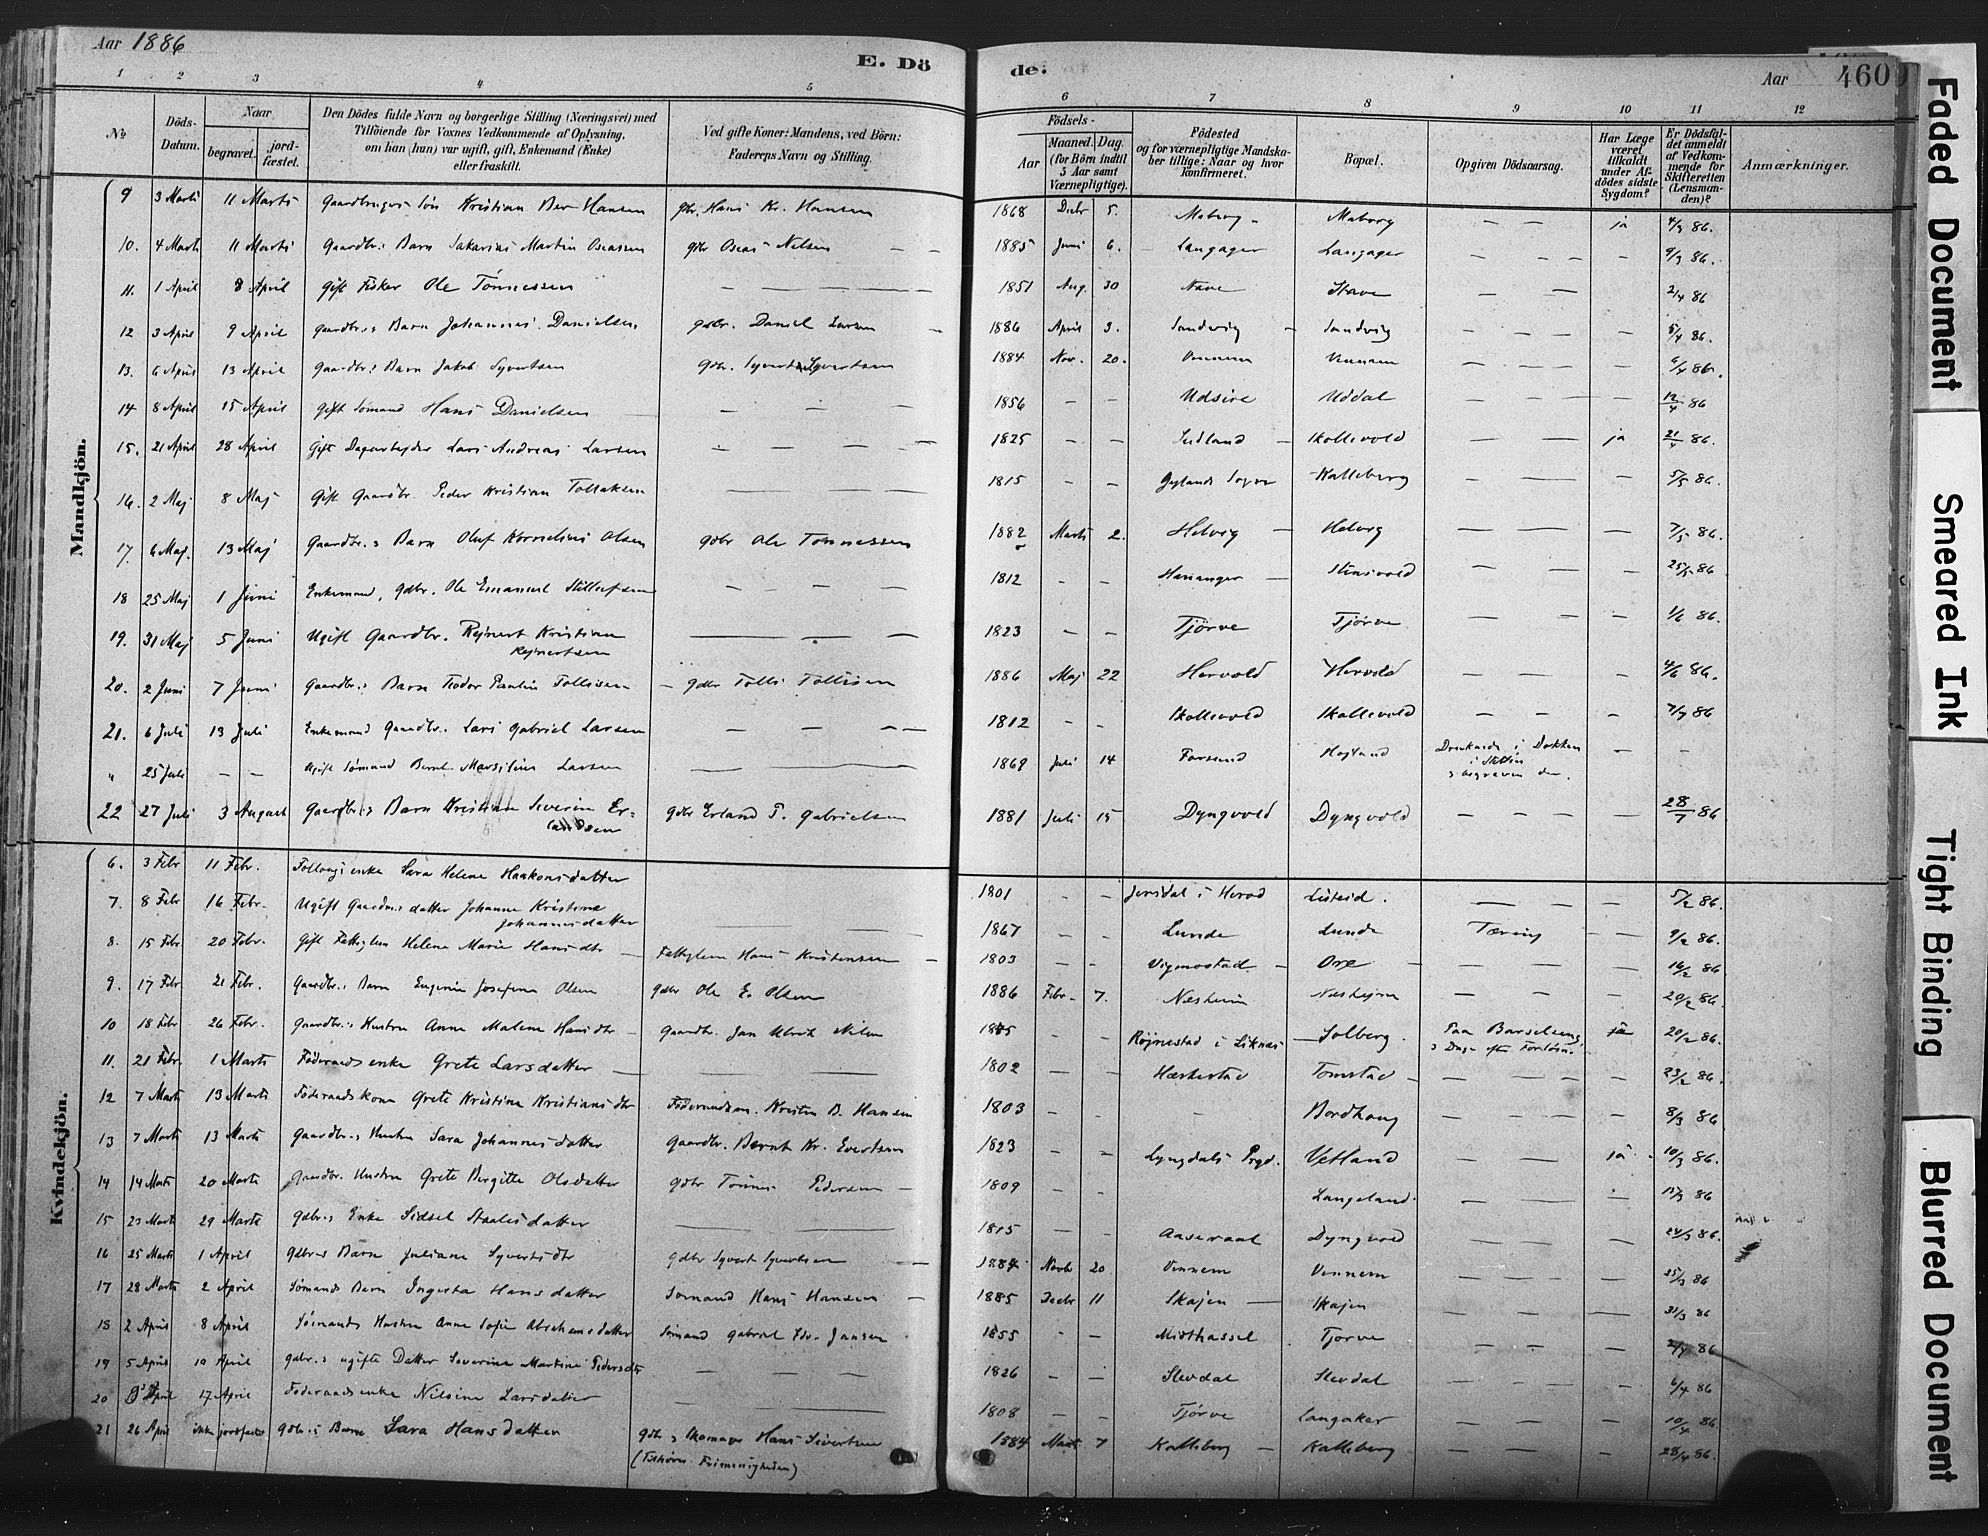 Aar 1886
E. Döde.
Aar 460
1 2 3 4 5 6 7 8 9 10 11 12
№
Döds-Datum.
Naar
begravet.
jord-fæstet.
Den Dödes fulde Navn og borgerlige Stilling (Næringsvei) med
Tilföiende for Voxnes Vedkommende af Oplysning,
om han (hun) var ugift, gift, Enkemand (Enke)
eller fraskilt.
Ved gifte Koner: Mandens, ved Börn:
Faderens Navn og Stilling.
Födsels-
Aar
Maaned. Dag.
(for Börn indtil
5 Aar samt
Værnepligtige).
Födested
og for værnepligtige Mandska-
ber tillige: Naar og hvor
konfirmeret.
Bopæl.
Opgiven Dödsaarsag.
Har Læge
været
tilkaldt
under Af-
dödes sidste
Sygdom?
Er Dödsfal-
det anmeldt
af Vedkom-
mende for
Skifteretten
(Lensman-
den)?
Anmærkninger.
Mandkjön.
9 3 Marts 11 Marts Gaardbruger Søn Kristian Ber Hansen gbr. Hans Kr. Hansen 1868 Decbr 5. Maberg Maberg — — ja 4/3 86.
10. 4 Marts 11 Marts Gaardbr.s Barn Sakarias Martin Oseassen gdbr Oseas Nelsen — — 1885 Juni 6. Langager Langager — — — — 9/3 86.
11. 1 April 8 April Gift Fisker Ole Tønnessen — — — — 1851 Aug. 30 Stave — — — 2/4 86
12 3 April 9 April Gaardbr.s Barn Johannes Danielsen gdbr. Daniel Larsen — 1886 April 3. Sandvig — Sandvig — — — — 5/4 86.
13. 6 April 13 April Gaardbr.s Barn Jakob Syvertsen Gdbr. Syvert Syvertsen 1884 Nov. 20. Vennem Vennem — — — 6/4 86.
14 8 April 15 April Gift Sømand Hans Danielsen — — — 1856 — — Udsire Uddal — — — — 12/4 86
15. 21 April 28 April Gift Dagarbejder Lars Andreas Larsen — — — — 1825 — — Indland — Skollevold — — ja 21/4 86.
16. 2 Maj 8 Maj Gift Gaardbr. Peder Kristian Tollaksen — — — 1815 — — Gylands Sogn Kalleberg — — — 5/5 86.
17. 6 Maj. 13 Maj Gaardbr.s Barn Oluf Kornelius Olsen gdbr Ole Tønnessen 1882 Marts 2. Helvig — Helvig — — — 7/5 86.
18 25 Maj 1 Juni Enkemand, gdbr. Ole Emanuel — — — 1812 — — — — — — 25/5 86
19. 31 Maj 5 Juni Ugift Gaardbr. Rejnert Kristian
Rejnertsen — — — 1823 — — Tjörve Tjörve — — — 1/6 86.
20. 2 Juni 7 Juni Gaardbr.s Barn Teodor Paulin Tollisen — gdbr Tolli Tollisen 1886 Maj 22 Hervold Hervold — — — 4/6 86.
21. 6 Juli 13 Juli Enkemand Gaardbr. Lars Gabriel Larsen — — — — 1812 — — Skollevold Skollevold — — — 7/7 86
" 25 Juli — — Ugift Sømand Bernt Marsilius Larsen — — — 1869 Juli 14 Farsund Hojland Druknede i Dokken
i Stettin
& begraven der. — —
22 27 Juli 3 August Gaardbr.s Barn Kristian Severin Er-
landsen gdbr Erland T. Gabrielsen 1881 Juli 15 Dyngvold Dyngvold — — — 28/7 86
Kvindekjön.
6. 3 Febr 11 Febr. enke Sara Helene Haakonsdatter 1801 — — Jersdal i Herad Listeid. — — — 5/2 86.
7. 8 Febr 16 Febr. Ugift Gaardm.s datter Johanne Kristine
Johannesdatter — — 1867 Lunde Lunde Tæring — — 9/2 86.
8. 15 Febr 20 Febr. Gift Fattiglem Helene Marie Hansdtr — Fattiglem Hans Kristensen — 1803 — — Vigmostad — Ore — — — — 16/2 86
9. 17 Febr 21 Febr. Gaardbr.s Barn Eugenie Josefine Olsen gdbr Ole E. Olsen 1886 Febr. 7. Næsheim Næshejm — — — 20/2 86.
10 18 Febr 26 Febr. Gaardbr.s Hustru Anne Malene Hansdtr — Gaardbr. Jan Ulrik Nilsen — — Röjnestad i Liknes — Solberg. Paa Barselseng,
3 Dage efter Forløsn. ja 20/2 86.
11. 21 Febr. 1 Marts Föderaads enke Grete Larsdatter — — — — 1802 — — Hærkestad Tomstad — — — — — 23/2 86
12 7 Marts 13 Marts Föderaadskone Grete Kristine Kristiansdtr Föderaadsm. Kristen B. Hansen 1803 — — — Bordhaug — — — 8/3 86
13 7 Marts 13 Marts Gaardbr.s Hustru Sara Johannesdatter Gaardbr. Bernt Kr. Evertsen 1823 — — Lyngdals Prgd. Vetland — — ja 10/3 86.
14 14 Marts 20 Marts Gaardbr. Hustru Grete Birgitte Olsdatter gdbr Tønnes Pedersen — 1809 — — Langeland. — — — 15/3 86
15 23 Marts 29 Marts Gdbr.s Enke Sidsel Staalesdatter — — 1815 — — Aaseraal Dyngvold — — — 24/3 86.
16 25 Marts 1 April gdbr.s Barn Juliane Syvertsdtr gdbr Syvert Syvertsen — 1884 Novbr 20 Vennem Vennem — — — — 25/3 86
17 28 Marts 2 April Sømands Barn Ingerta Hansdatter Sømand Hans Hansen — 1885 Decbr 11 Skajen — Skajen — — — — 31/3 86
18 2 April 8 April Sømands Hustru Anne Sofie Abrahamsdatter Sømand Gabriel Edv. Jansen 1855 — — Midthassel Tjorve — — — — 2/4 86
19 5 April 10 April gdbr.s ugifte Datter Severine Martine Pedersdtr — — 1826 — — Slevdal Slevdal — — — 6/4 86
20 April 17 April Föderaadsenke Nilsine Larsdatter — — 1808 — — Tjörve Langaker — — — 10/4 86.
21 26 April ikke jordfæstet gdbr.s Barn Sara Hansdatter gdbr. & Hans Sivertsen
(Tilhører Frimenigheden) 1884 Marts 7 Kalleberg — Kalleberg — — — 28/4 86.
Faded Document
Smeared Ink
Tight Binding
Blurred Document